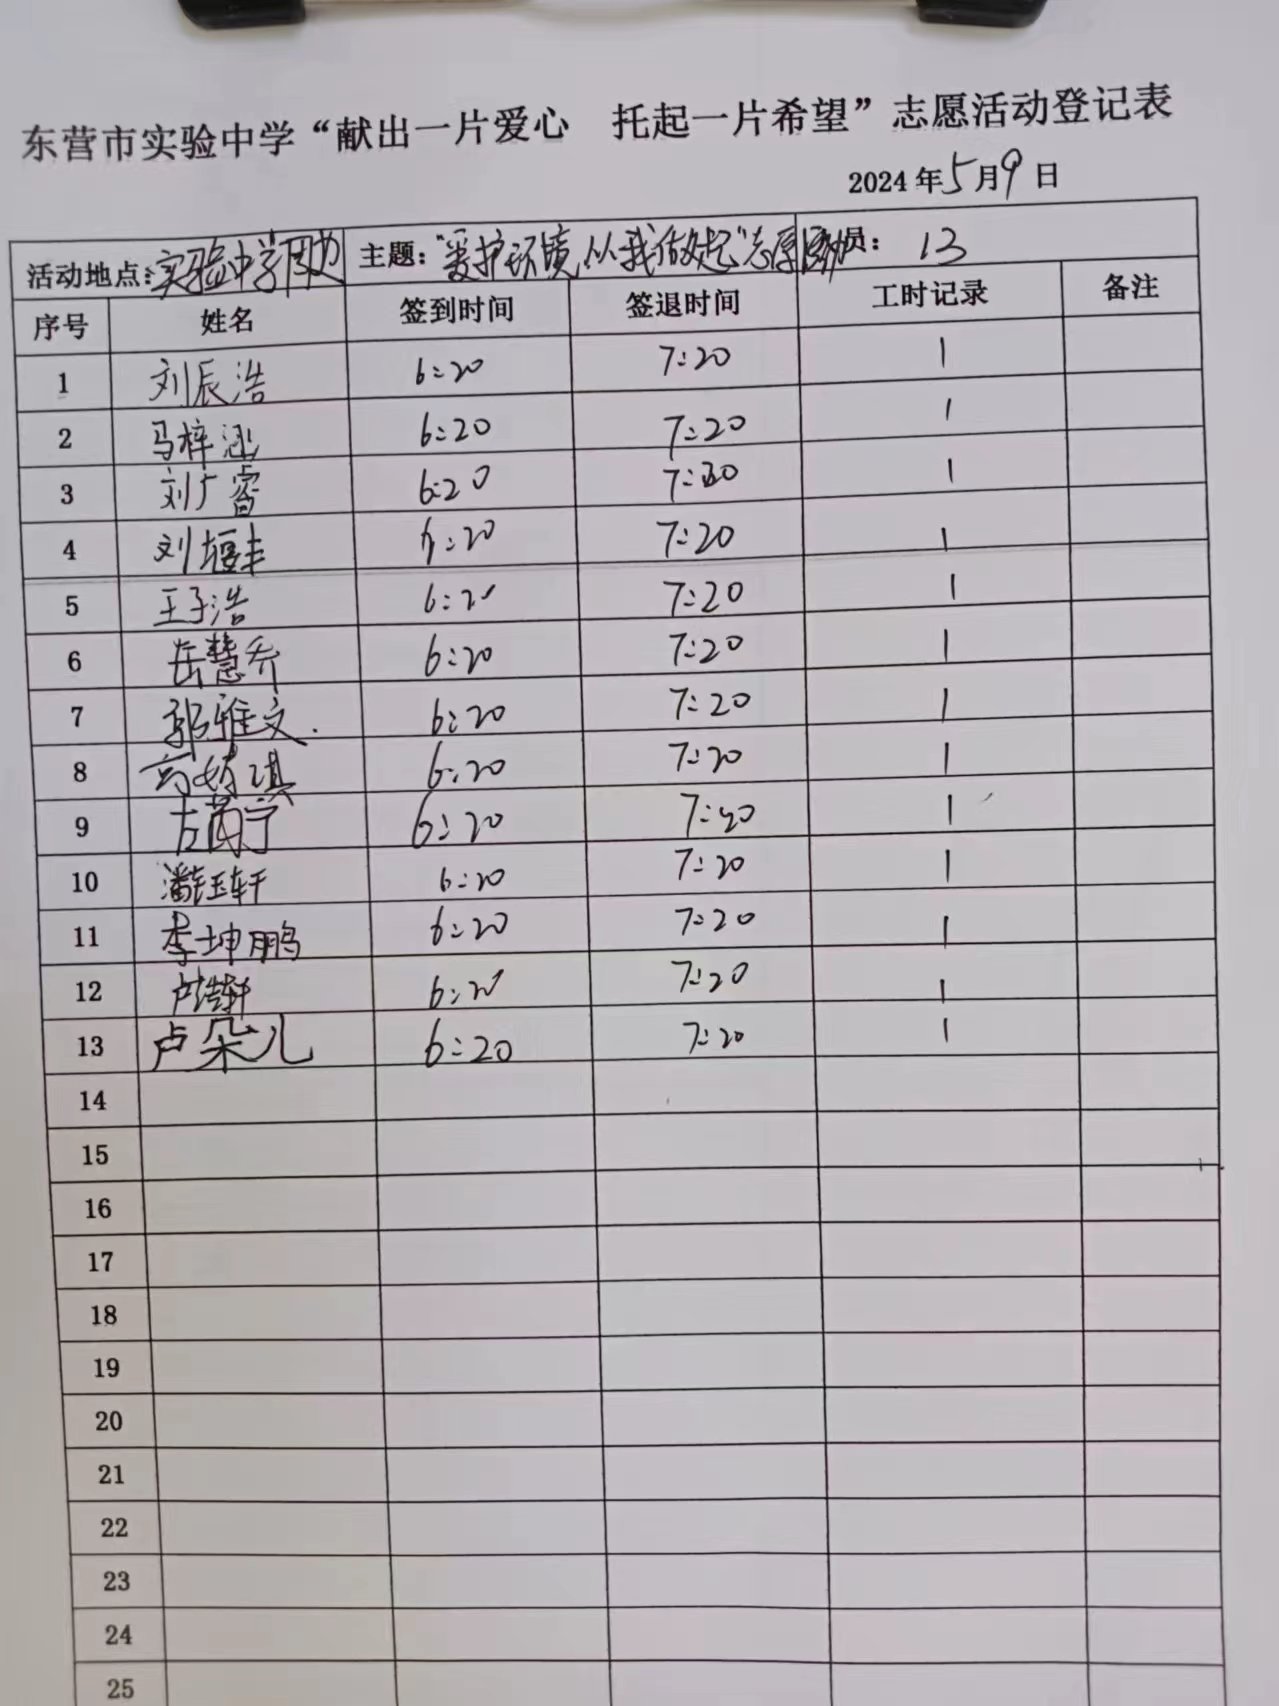 东营市实验中学“献出一片爱心 托起一片希望”志愿活动登记表
2024年5月9日
活动地点:实验中学周边 主题:“爱护环境从我做起”志愿活动 员:13
序号 姓名 签到时间 签退时间 工时记录 备注
1 刘辰浩 6:20 7:20 1
2 马梓涵 6:20 7:20 1
3 刘广睿 6:20 7:20 1
4 刘堰丰 6:20 7:20 1
5 王子浩 6:20 7:20 1
6 岳慧乔 6:20 7:20 1
7 郭雅文. 6:20 7:20 1
8 高婧琪 6:20 7:20 1
9 左茵宁 6:20 7:20 1
10 潘钰轩 6:20 7:20 1
11 李坤鹏 6:20 7:20 1
12 卢浩轩 6:20 7:20 1
13 卢朵儿 6:20 7:20 1
14
15
16
17
18
19
20
21
22
23
24
25